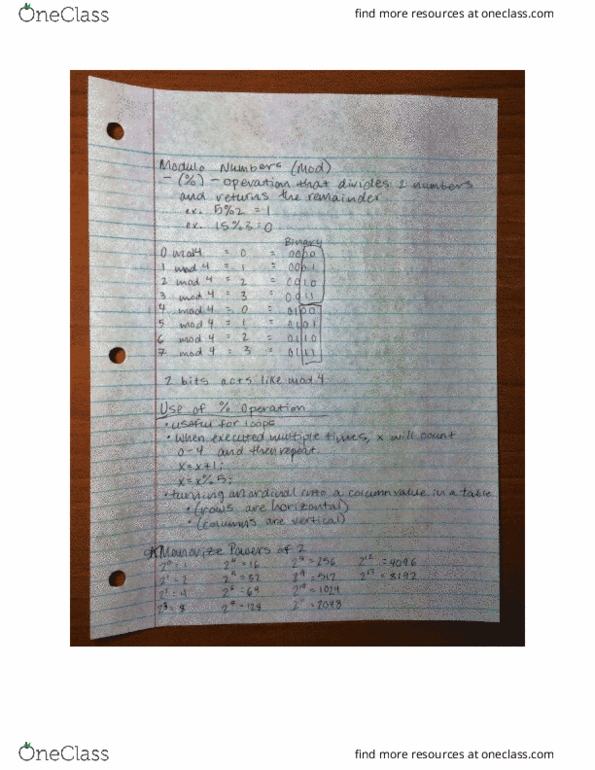 OneClass
find more resources at oneclass.com
Modulo Numbers (Mod)
- (%) - operation that divides 2 numbers
and returns the remainder
ex. 5%2 = 1
ex. 15%3 = 0
Binary
0 mod 4 = 0 = 0000
1 mod 4 = 1 = 0001
2 mod 4 = 2 = 0010
3 mod 4 = 3 = 0011
4 mod 4 = 0 = 0100
5 mod 4 = 1 = 0101
6 mod 4 = 2 = 0110
7 mod 4 = 3 = 0111
2 bits acts like mod 4
Use of % Operation
• useful for loops
• when executed multiple times, x will count
0-4 and then repeat.
x=x+1;
x=x%5;
• turning an ordinal into a column value in a table
• (rows are horizontal)
• (columns are vertical)
Memorize Powers of 2
2⁰=1 2⁴=16 2⁸=256 2¹²=4096
2¹=2 2⁵=32 2⁹=512 2¹³=8192
2²=4 2⁶=64 2¹⁰=1024
2³=8 2⁷=128 2¹¹=2048
OneClass
find more resources at oneclass.com